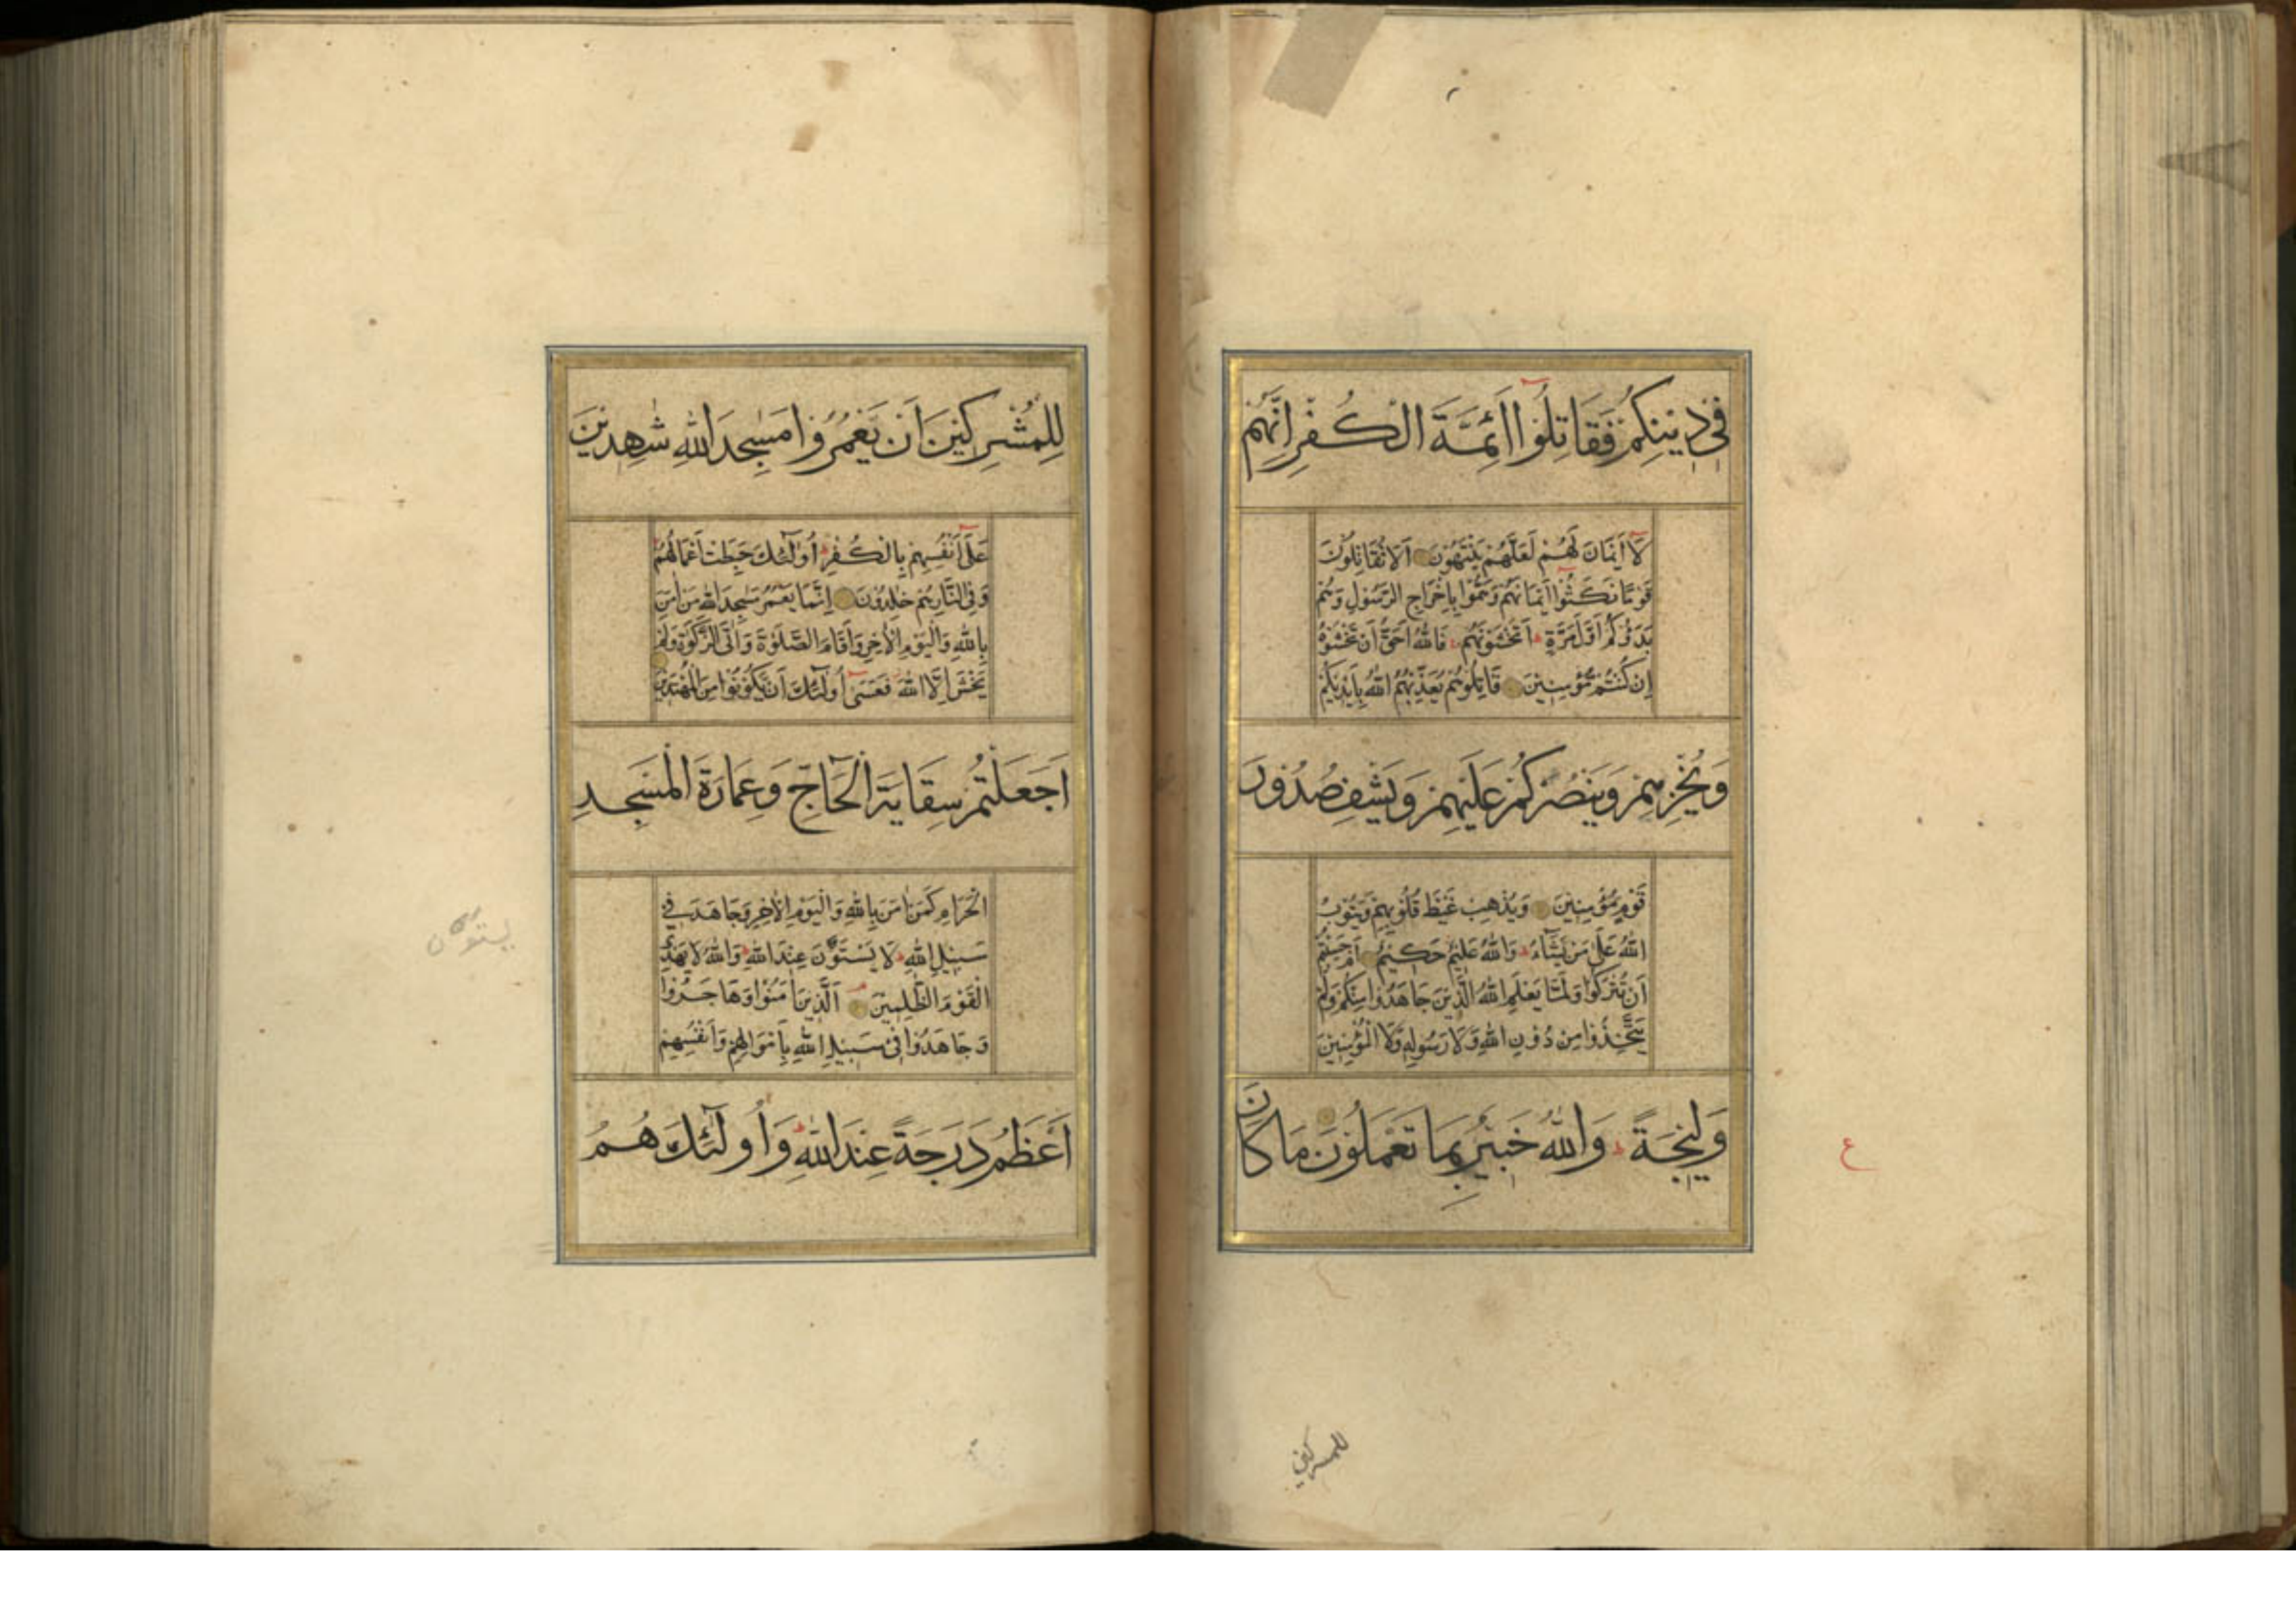 فِي دِينِكُمْ فَقَاتِلُوا أَئِمَّةَ الْكُفْرِ اِنَّهُمْ
لَا اَيْمَانَ لَهُمْ لَعَلَّهُمْ يَنْتَهُونَ اَلَا تُقَاتِلُونَ
قَوْمًا نَكَثُوا اَيْمَانَهُمْ وَهَمُّوا بِاِخْرَاجِ الرَّسُولِ وَهُمْ
بَدَؤُكُمْ اَوَّلَ مَرَّةٍ اَتَخْشَوْنَهُمْ فَاللّٰهُ اَحَقُّ اَنْ تَخْشَوْهُ
اِنْ كُنْتُمْ مُؤْمِنِينَ قَاتِلُوهُمْ يُعَذِّبْهُمُ اللّٰهُ بِاَيْدِيكُمْ
وَيُخْزِهِمْ وَيَنْصُرْكُمْ عَلَيْهِمْ وَيَشْفِ صُدُورَ
قَوْمٍ مُؤْمِنِينَ وَيُذْهِبْ غَيْظَ قُلُوبِهِمْ وَيَتُوبُ
اللّٰهُ عَلَى مَنْ يَشَآءُ وَاللّٰهُ عَلِيمٌ حَكِيمٌ اَمْ حَسِبْتُمْ
اَنْ تُتْرَكُوا وَلَمَّا يَعْلَمِ اللّٰهُ الَّذِينَ جَاهَدُوا مِنْكُمْ وَلَمْ
يَتَّخِذُوا مِنْ دُونِ اللّٰهِ وَلَا رَسُولِهِ وَلَا الْمُؤْمِنِينَ
وَلِيجَةً وَاللّٰهُ خَبِيرٌ بِمَا تَعْمَلُونَ مَا كَانَ
ع
للمسركين
لِلْمُشْرِكِينَ اَنْ يَعْمُرُوا مَسٰجِدَ اللّٰهِ شٰهِدِينَ
عَلَى اَنْفُسِهِمْ بِالْكُفْرِ اُولٰٓئِكَ حَبِطَتْ اَعْمَالُهُمْ
وَفِي النَّارِ هُمْ خٰلِدُونَ اِنَّمَا يَعْمُرُ مَسٰجِدَ اللّٰهِ مَنْ اٰمَنَ
بِاللّٰهِ وَالْيَوْمِ الْاٰخِرِ وَاَقَامَ الصَّلٰوةَ وَاٰتَى الزَّكٰوةَ وَلَمْ
يَخْشَ اِلَّا اللّٰهَ فَعَسٰٓى اُولٰٓئِكَ اَنْ يَكُونُوا مِنَ الْمُهْتَدِينَ
اَجَعَلْتُمْ سِقَايَةَ الْحَآجِّ وَعِمَارَةَ الْمَسْجِدِ
الْحَرَامِ كَمَنْ اٰمَنَ بِاللّٰهِ وَالْيَوْمِ الْاٰخِرِ وَجَاهَدَ فِي
سَبِيلِ اللّٰهِ لَا يَسْتَوُنَ عِنْدَ اللّٰهِ وَاللّٰهُ لَا يَهْدِي
الْقَوْمَ الظّٰلِمِينَ اَلَّذِينَ اٰمَنُوا وَهَاجَرُوا
وَجَاهَدُوا فِي سَبِيلِ اللّٰهِ بِاَمْوَالِهِمْ وَاَنْفُسِهِمْ
اَعْظَمُ دَرَجَةً عِنْدَ اللّٰهِ وَاُولٰٓئِكَ هُمُ